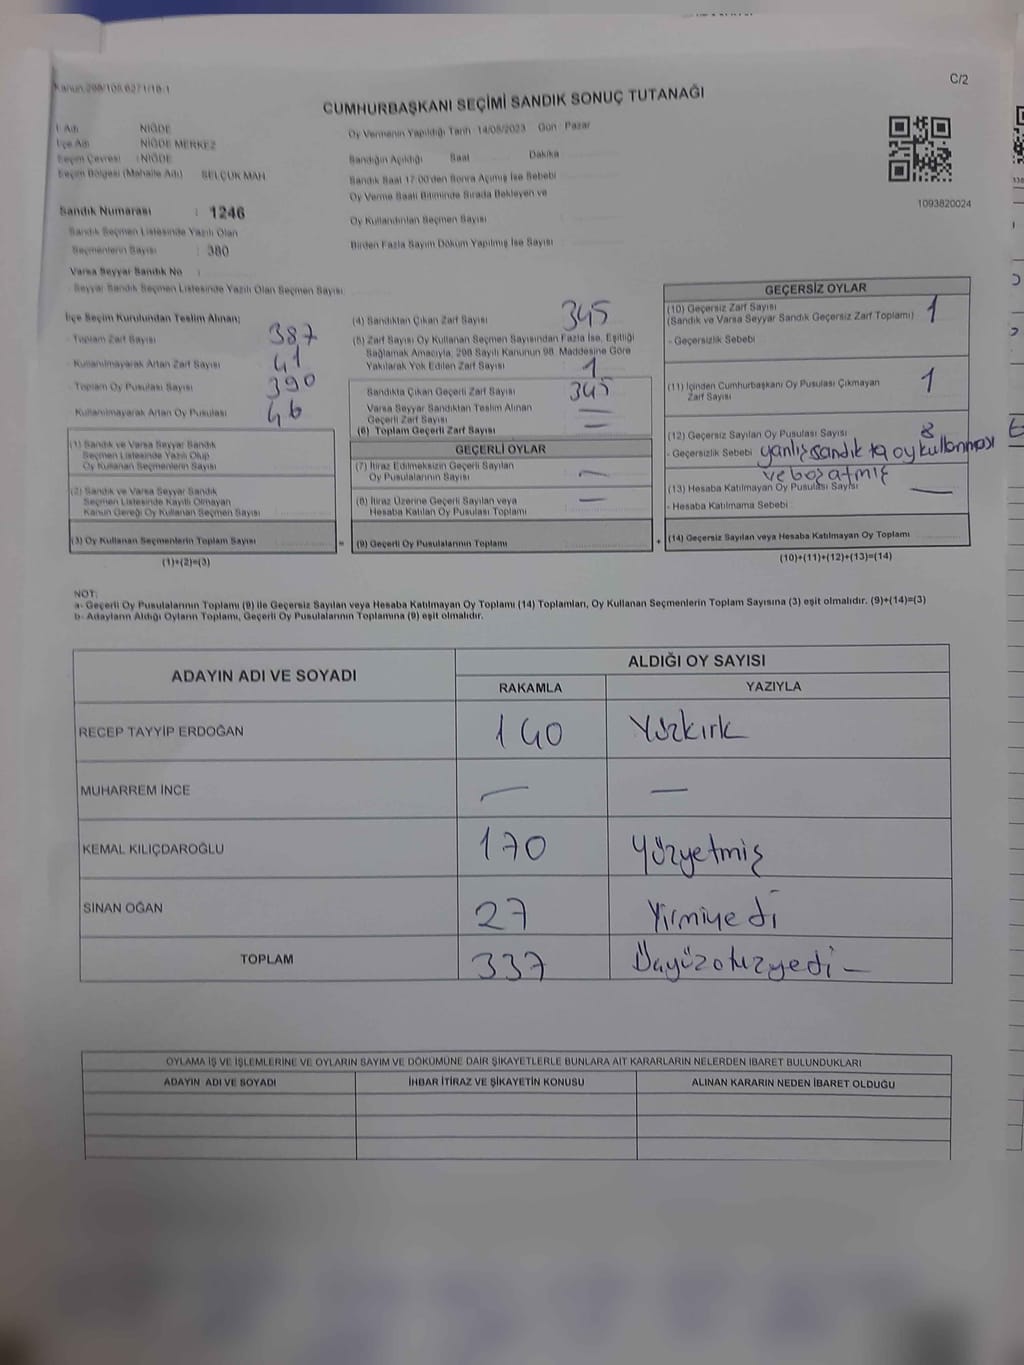 Kanun:298/105,6271/18-1
C/2
CUMHURBAŞKANI SEÇİMİ SANDIK SONUÇ TUTANAĞI
İl Adı NİĞDE
İlçe Adı NİĞDE MERKEZ
Seçim Çevresi : NİĞDE
Seçim Bölgesi (Mahalle Adı) SELÇUK MAH.
Sandık Numarası : 1246
Sandık Seçmen Listesinde Yazılı Olan
Seçmenlerin Sayısı : 380
Varsa Seyyar Sandık No :
- Seyyar Sandık Seçmen Listesinde Yazılı Olan Seçmen Sayısı:
Oy Vermenin Yapıldığı Tarih : 14/05/2023 Gün : Pazar
Sandığın Açıldığı Saat Dakika
Sandık Saat 17:00'den Sonra Açımış İse Sebebi
Oy Verme Saati Bitiminde Sırada Bekleyen ve
Oy Kullandırılan Seçmen Sayısı
Birden Fazla Sayım Döküm Yapılmış İse Sayısı
1093820024
İlçe Seçim Kurulundan Teslim Alınan;
- Toplam Zarf Sayısı 387
- Kullanılmayarak Artan Zarf Sayısı 41
- Toplam Oy Pusulası Sayısı 390
- Kullanılmayarak Artan Oy Pusulası 46
(1) Sandık ve Varsa Seyyar Sandık
Seçmen Listesinde Yazılı Olup
Oy Kullanan Seçmenlerin Sayısı
(2) Sandık ve Varsa Seyyar Sandık
Seçmen Listesinde Kayıtlı Olmayan
Kanun Gereği Oy Kullanan Seçmen Sayısı
(3) Oy Kullanan Seçmenlerin Toplam Sayısı
(1)+(2)=(3)
(4) Sandıktan Çıkan Zarf Sayısı 345
(5) Zarf Sayısı Oy Kullanan Seçmen Sayısından Fazla İse, Eşitliği
Sağlamak Amacıyla, 298 Sayılı Kanunun 98. Maddesine Göre
Yakılarak Yok Edilen Zarf Sayısı 1
Sandıkta Çıkan Geçerli Zarf Sayısı 345
Varsa Seyyar Sandıktan Teslim Alınan
Geçerli Zarf Sayısı —
(6) Toplam Geçerli Zarf Sayısı
GEÇERLİ OYLAR
(7) İtiraz Edilmeksizin Geçerli Sayılan
Oy Pusulalarının Sayısı —
(8) İtiraz Üzerine Geçerli Sayılan veya
Hesaba Katılan Oy Pusulası Toplamı —
= (9) Geçerli Oy Pusulalarının Toplamı
GEÇERSİZ OYLAR
(10) Geçersiz Zarf Sayısı 1
(Sandık ve Varsa Seyyar Sandık Geçersiz Zarf Toplamı)
- Geçersizlik Sebebi
(11) İçinden Cumhurbaşkanı Oy Pusulası Çıkmayan 1
Zarf Sayısı
(12) Geçersiz Sayılan Oy Pusulası Sayısı 8
- Geçersizlik Sebebi yanlış sandık ta oy kullanması
ve boz atmış
(13) Hesaba Katılmayan Oy Pusulası Sayısı —
- Hesaba Katılmama Sebebi
+ (14) Geçersiz Sayılan veya Hesaba Katılmayan Oy Toplamı
(10)+(11)+(12)+(13)=(14)
NOT:
a- Geçerli Oy Pusulalarının Toplamı (9) ile Geçersiz Sayılan veya Hesaba Katılmayan Oy Toplamı (14) Toplamları, Oy Kullanan Seçmenlerin Toplam Sayısına (3) eşit olmalıdır. (9)+(14)=(3)
b- Adayların Aldığı Oyların Toplamı, Geçerli Oy Pusulalarının Toplamına (9) eşit olmalıdır.
ADAYIN ADI VE SOYADI
ALDIĞI OY SAYISI
RAKAMLA YAZIYLA
RECEP TAYYİP ERDOĞAN 140 Yüzkırk
MUHARREM İNCE — —
KEMAL KILIÇDAROĞLU 170 Yüzyetmiş
SİNAN OĞAN 27 Yirmiyedi
TOPLAM 337 Üçyüzotuzyedi —
OYLAMA İŞ VE İŞLEMLERİNE VE OYLARIN SAYIM VE DÖKÜMÜNE DAİR ŞİKAYETLERLE BUNLARA AİT KARARLARIN NELERDEN İBARET BULUNDUKLARI
ADAYIN ADI VE SOYADI İHBAR İTİRAZ VE ŞİKAYETİN KONUSU ALINAN KARARIN NEDEN İBARET OLDUĞU